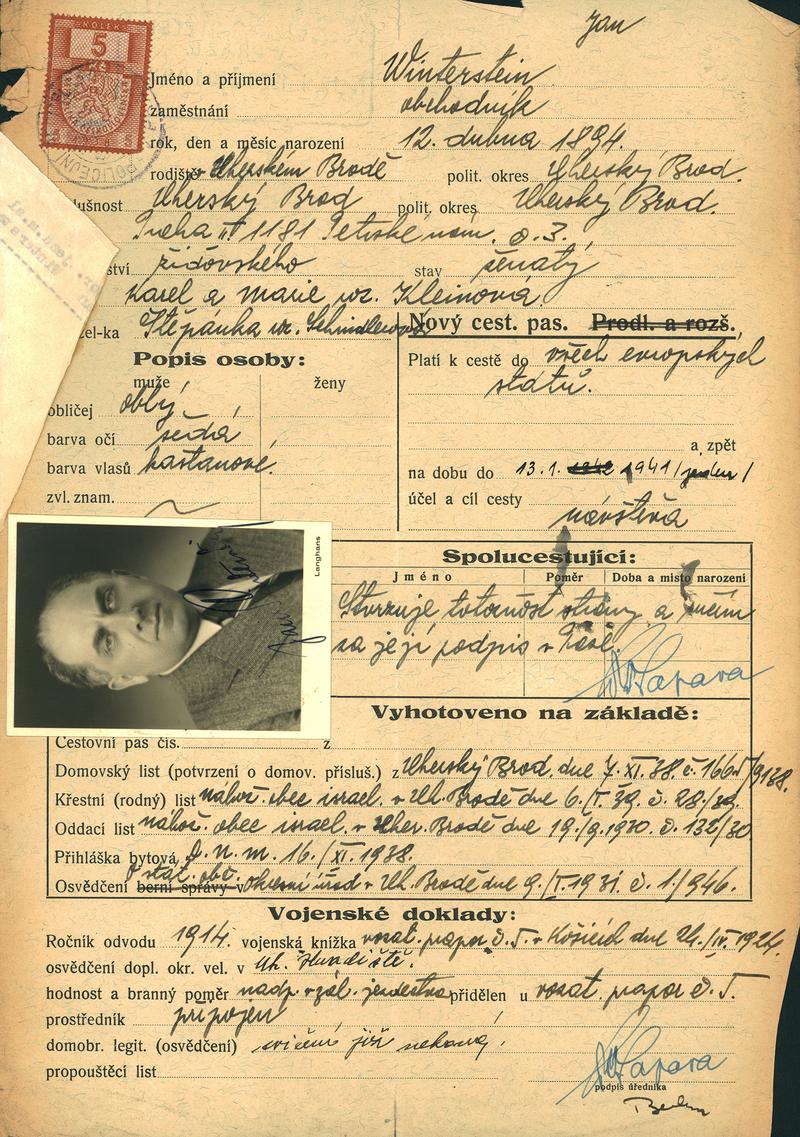 Jan
KOLEK
5
Kč
Jméno a příjmení Winterstein
zaměstnání obchodník
rok, den a měsíc narození 12. dubna 1894.
rodiště v Uherském Brodě polit. okres Uherský Brod.
lušnost Uherský Brod polit. okres Uherský Brod.
Praha II 1181 Petrské nám. č. 3.
ství židovského stav ženatý
Karel a Marie roz. Kleinová
žel-ka Štěpánka roz. Schindlerová
Nový cest. pas. Prodl. a rozš.
Popis osoby:
Platí k cestě do všech evropských
států.
muže ženy
obličej oblý
barva očí šedá
a zpět
barva vlasů kaštanové.
na dobu do 13.1. 1941 /jeden/
zvl. znam.
účel a cíl cesty
návštěva
Langhans
Spolucestující:
Jméno Poměr Doba a místo narození
Stvrzuje totožnost strany a ručím
za její podpis v Pase.
Vyhotoveno na základě:
Cestovní pas čís. z
Domovský list (potvrzení o domov. přísluš.) z Uherský Brod, dne 7. XI. 38. č.
Křestní (rodný) list nábož. obec israel. v Uh. Brodě dne 6./I. 39. č. 28./39.
Oddací list nábož. obec israel. v Uher. Brodě dne 19./9.1930. č. 132/30
Přihláška bytová 16./XI. 1938.
O stát. obč.
Osvědčení berní správy v okresní úřad v Uh. Brodě dne 9./I. 1931. č. 1./946.
Vojenské doklady:
Ročník odvodu 1914. vojenská knížka vozat. prapor č. 5. v Košicích dne 24./IV. 1924.
osvědčení dopl. okr. vel. v Uh. Hradiště.
hodnost a branný poměr přidělen u vozat. prapor č. 5
prostředník připojen
domobr. legit. (osvědčení) cvičení již nekoná.
propouštěcí list
podpis úředníka